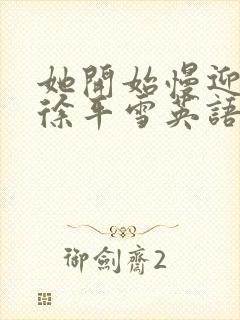 她開始慢迎
徐平雪英語
御劍齋2